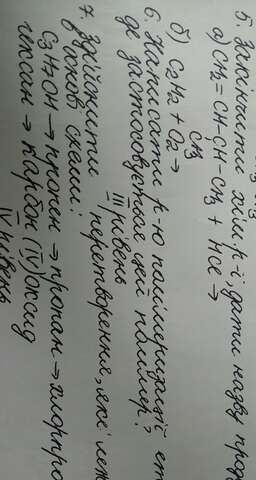 5. Закінчити хім р-ї, дати назву
а) CH₂ = CH - CH - CH₃ + HCl →
CH₃
б) C₂H₂ + O₂ →
6. Написати р-ю полімеризації ет
де застосовується цей полімер?
III рівень
7. Здійснити перетворення, які леж
основі схеми:
C₃H₇OH → пропен → пропан → хлорпро
гексан → карбон (IV) оксид
IV рівень